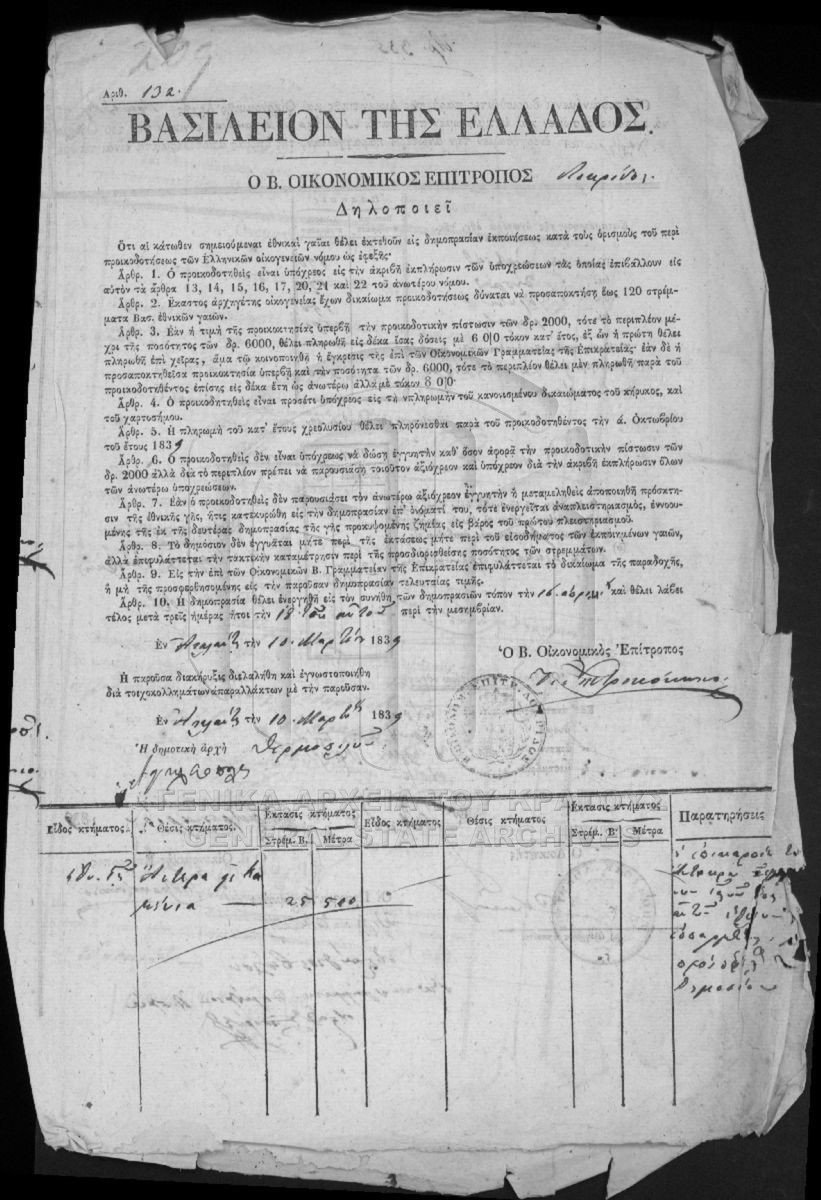 Αριθ. 132.
ΒΑΣΙΛΕΙΟΝ ΤΗΣ ΕΛΛΑΔΟΣ.
Ο Β. ΟΙΚΟΝΟΜΙΚΟΣ ΕΠΙΤΡΟΠΟΣ Λοκρίδος.
Δηλοποιεῖ
Ὅτι αἱ κάτωθεν σημειούμεναι ἐθνικαὶ γαῖαι θέλει ἐκτεθοῦν εἰς δημοπρασίαν ἐκποιήσεως κατὰ τοὺς ὁρισμοὺς τοῦ περὶ
προικοδοτήσεως τῶν Ἑλληνικῶν οἰκογενειῶν νόμου ὡς ἐφεξῆς·
Ἄρθρ. 1. Ὁ προικοδοτηθεὶς εἶναι ὑπόχρεος εἰς τὴν ἀκριβῆ ἐκπλήρωσιν τῶν ὑποχρεώσεων τὰς ὁποίας ἐπιβάλλουν εἰς
αὐτὸν τὰ ἄρθρα 13, 14, 15, 16, 17, 20, 21 καὶ 22 τοῦ ἀνωτέρω νόμου.
Ἄρθρ. 2. Ἕκαστος ἀρχηγέτης οἰκογενείας ἔχων δικαίωμα προικοδοτήσεως δύναται νὰ προσαποκτήσῃ ἕως 120 στρέμ-
ματα Βασ. ἐθνικῶν γαιῶν.
Ἄρθρ. 3. Ἐὰν ἡ τιμὴ τῆς προικοκτησίας ὑπερβῇ τὴν προικοδοτικὴν πίστωσιν τῶν δρ. 2000, τότε τὸ περιπλέον μέ-
χρι τῆς ποσότητος τῶν δρ. 6000, θέλει πληρωθῆ εἰς δέκα ἴσας δόσεις μὲ 6 0|0 τόκον κατ' ἔτος, ἐξ ὧν ἡ πρώτη θέλει
πληρωθῆ ἐπὶ χεῖρας, ἅμα τῷ κοινοποιηθῇ ἡ ἔγκρισις τῆς ἐπὶ τῶν Οἰκονομικῶν Γραμματείας τῆς Ἐπικρατείας· ἐὰν δὲ ἡ
προσαποκτηθεῖσα προικοκτησία ὑπερβῇ καὶ τὴν ποσότητα τῶν δρ. 6000, τότε τὸ περιπλέον θέλει μὲν πληρωθῆ παρὰ τοῦ
προικοδοτηθέντος ἐπίσης εἰς δέκα ἔτη ὡς ἀνωτέρω ἀλλὰ μὲ τόκον 8 0|0·
Ἄρθρ. 4. Ὁ προικοδοτηθεὶς εἶναι προσέτι ὑπόχρεος εἰς τὴν πληρωμὴν τοῦ κανονισμένου δικαιώματος τοῦ κήρυκος, καὶ
τοῦ χαρτοσήμου.
Ἄρθρ. 5. Ἡ πληρωμὴ τοῦ κατ' ἔτους χρεολυσίου θέλει πληρόνεσθαι παρὰ τοῦ προικοδοτηθέντος τὴν ά. Ὀκτωβρίου
τοῦ ἔτους 1839
Ἄρθρ. 6. Ὁ προικοδοτηθεὶς δὲν εἶναι ὑπόχρεως νὰ δώσῃ ἐγγυητὴν καθ' ὅσον ἀφορᾷ τὴν προικοδοτικὴν πίστωσιν τῶν
δρ. 2000 ἀλλὰ διὰ τὸ περιπλέον πρέπει νὰ παρουσιάσῃ τοιοῦτον ἀξιόχρεον καὶ ὑπόχρεον διὰ τὴν ἀκριβῆ ἐκπλήρωσιν ὅλων
τῶν ἀνωτέρω ὑποχρεώσεων.
Ἄρθρ. 7. Ἐὰν ὁ προικοδοτηθεὶς δὲν παρουσιάσει τὸν ἀνωτέρω ἀξιόχρεον ἐγγυητὴν ἢ μεταμεληθεὶς ἀποποιηθῇ πρόσκτη-
σιν τῆς ἐθνικῆς γῆς, ἥτις κατεκυρώθη εἰς τὴν δημοπρασίαν ἐπ' ὀνόματί του, τότε ἐνεργεῖται ἀναπλειστηριασμός, ἐννοου-
μένης τῆς ἐκ τῆς δευτέρας δημοπρασίας τῆς γῆς προκυψομένης ζημίας εἰς βάρος τοῦ πρώτου πλειστηριασμοῦ.
Ἄρθρ. 8. Τὸ δημόσιον δὲν ἐγγυᾶται μήτε περὶ τῆς ἐκτάσεως μήτε περὶ τοῦ εἰσοδήματος τῶν ἐκποιημένων γαιῶν,
ἀλλὰ ἐπιφυλάττεται τὴν τακτικὴν καταμέτρησιν περὶ τῆς προσδιορισθείσης ποσότητος τῶν στρεμμάτων.
Ἄρθρ. 9. Εἰς τὴν ἐπὶ τῶν Οἰκονομικῶν Β. Γραμματείαν τῆς Ἐπικρατείας ἐπιφυλάττεται τὸ δικαίωμα τῆς παραδοχῆς,
ἢ μὴ τῆς προσφερθησομένης εἰς τὴν παροῦσαν δημοπρασίαν τελευταίας τιμῆς.
Ἄρθρ. 10. Ἡ δημοπρασία θέλει ἐνεργηθῆ εἰς τὸν συνήθη τῶν δημοπρασιῶν τόπον τὴν 16 καὶ θέλει λάβει
τέλος μετὰ τρεῖς ἡμέρας ἤτοι τὴν 18 τοῦ αὐτοῦ περὶ τὴν μεσημβρίαν.
Ἐν Ἀταλάντῃ τὴν 10 Μαρτίου 1839
Ὁ Β. Οἰκονομικὸς Ἐπίτροπος
Ἡ παροῦσα διακήρυξις διελαλήθη καὶ ἐγνωστοποιήθη
διὰ τοιχοκολλημῶν ἀπαραλλάκτων μὲ τὴν παροῦσαν.
Ἐν Ἀταλάντῃ τὴν 10 Μαρτίου 1839
Ἡ δημοτικὴ ἀρχὴ Θερμοπυλῶν
ΓΕΝΙΚΑ ΑΡΧΕΙΑ ΤΟΥ ΚΡΑΤΟΥΣ
GENERAL STATE ARCHIVES
Εἶδος κτήματος Θέσις κτήματος. Ἔκτασις κτήματος Εἶδος κτήματος Θέσις κτήματος Ἔκτασις κτήματος Παρατηρήσεις
Στρέμ. Β. Μέτρα Στρέμ. Β. Μέτρα
25 500